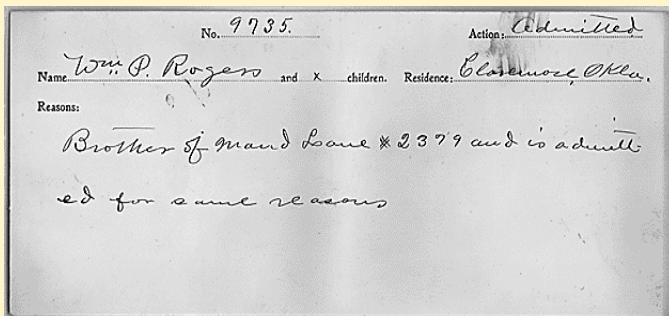 No. 9735. Action: Admitted
Name Wm P. Rogers and x children. Residence: Claremore, Okla.
Reasons:
Brother of Maud Lane #2379 and is admitt
ed for same reasons